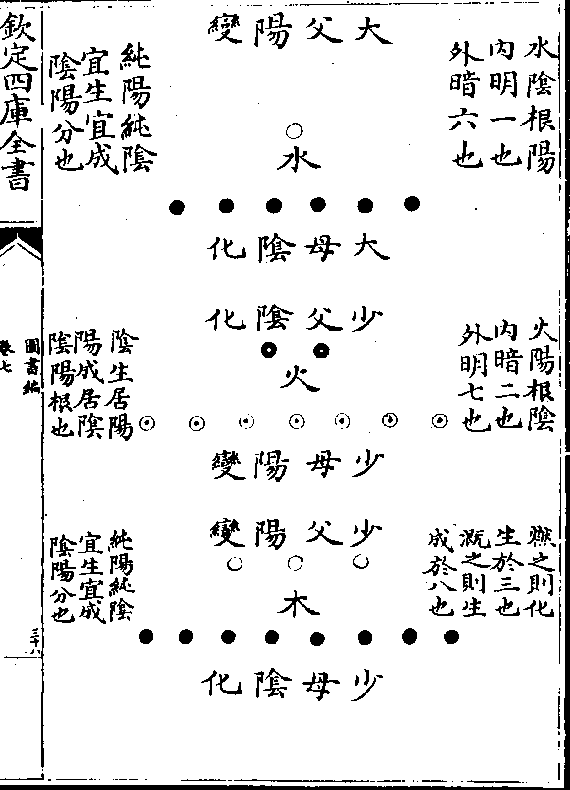 大父陽變
水陰根陽
内明一也
外暗六也
純陽純陰
宜生宜成
陰陽分也
水
大母陰化
少父陰化
火陽根陰
内暗二也
外明七也
陰生居陽
陽成居陰
陰陽根也
火
少母陽變
少父陽變
燃之則化
生於三也
溉之則生
成於八也
純陽純陰
宜生宜成
陰陽分也
木
少母陰化
欽定四庫全書
圖書編
卷七
三十八